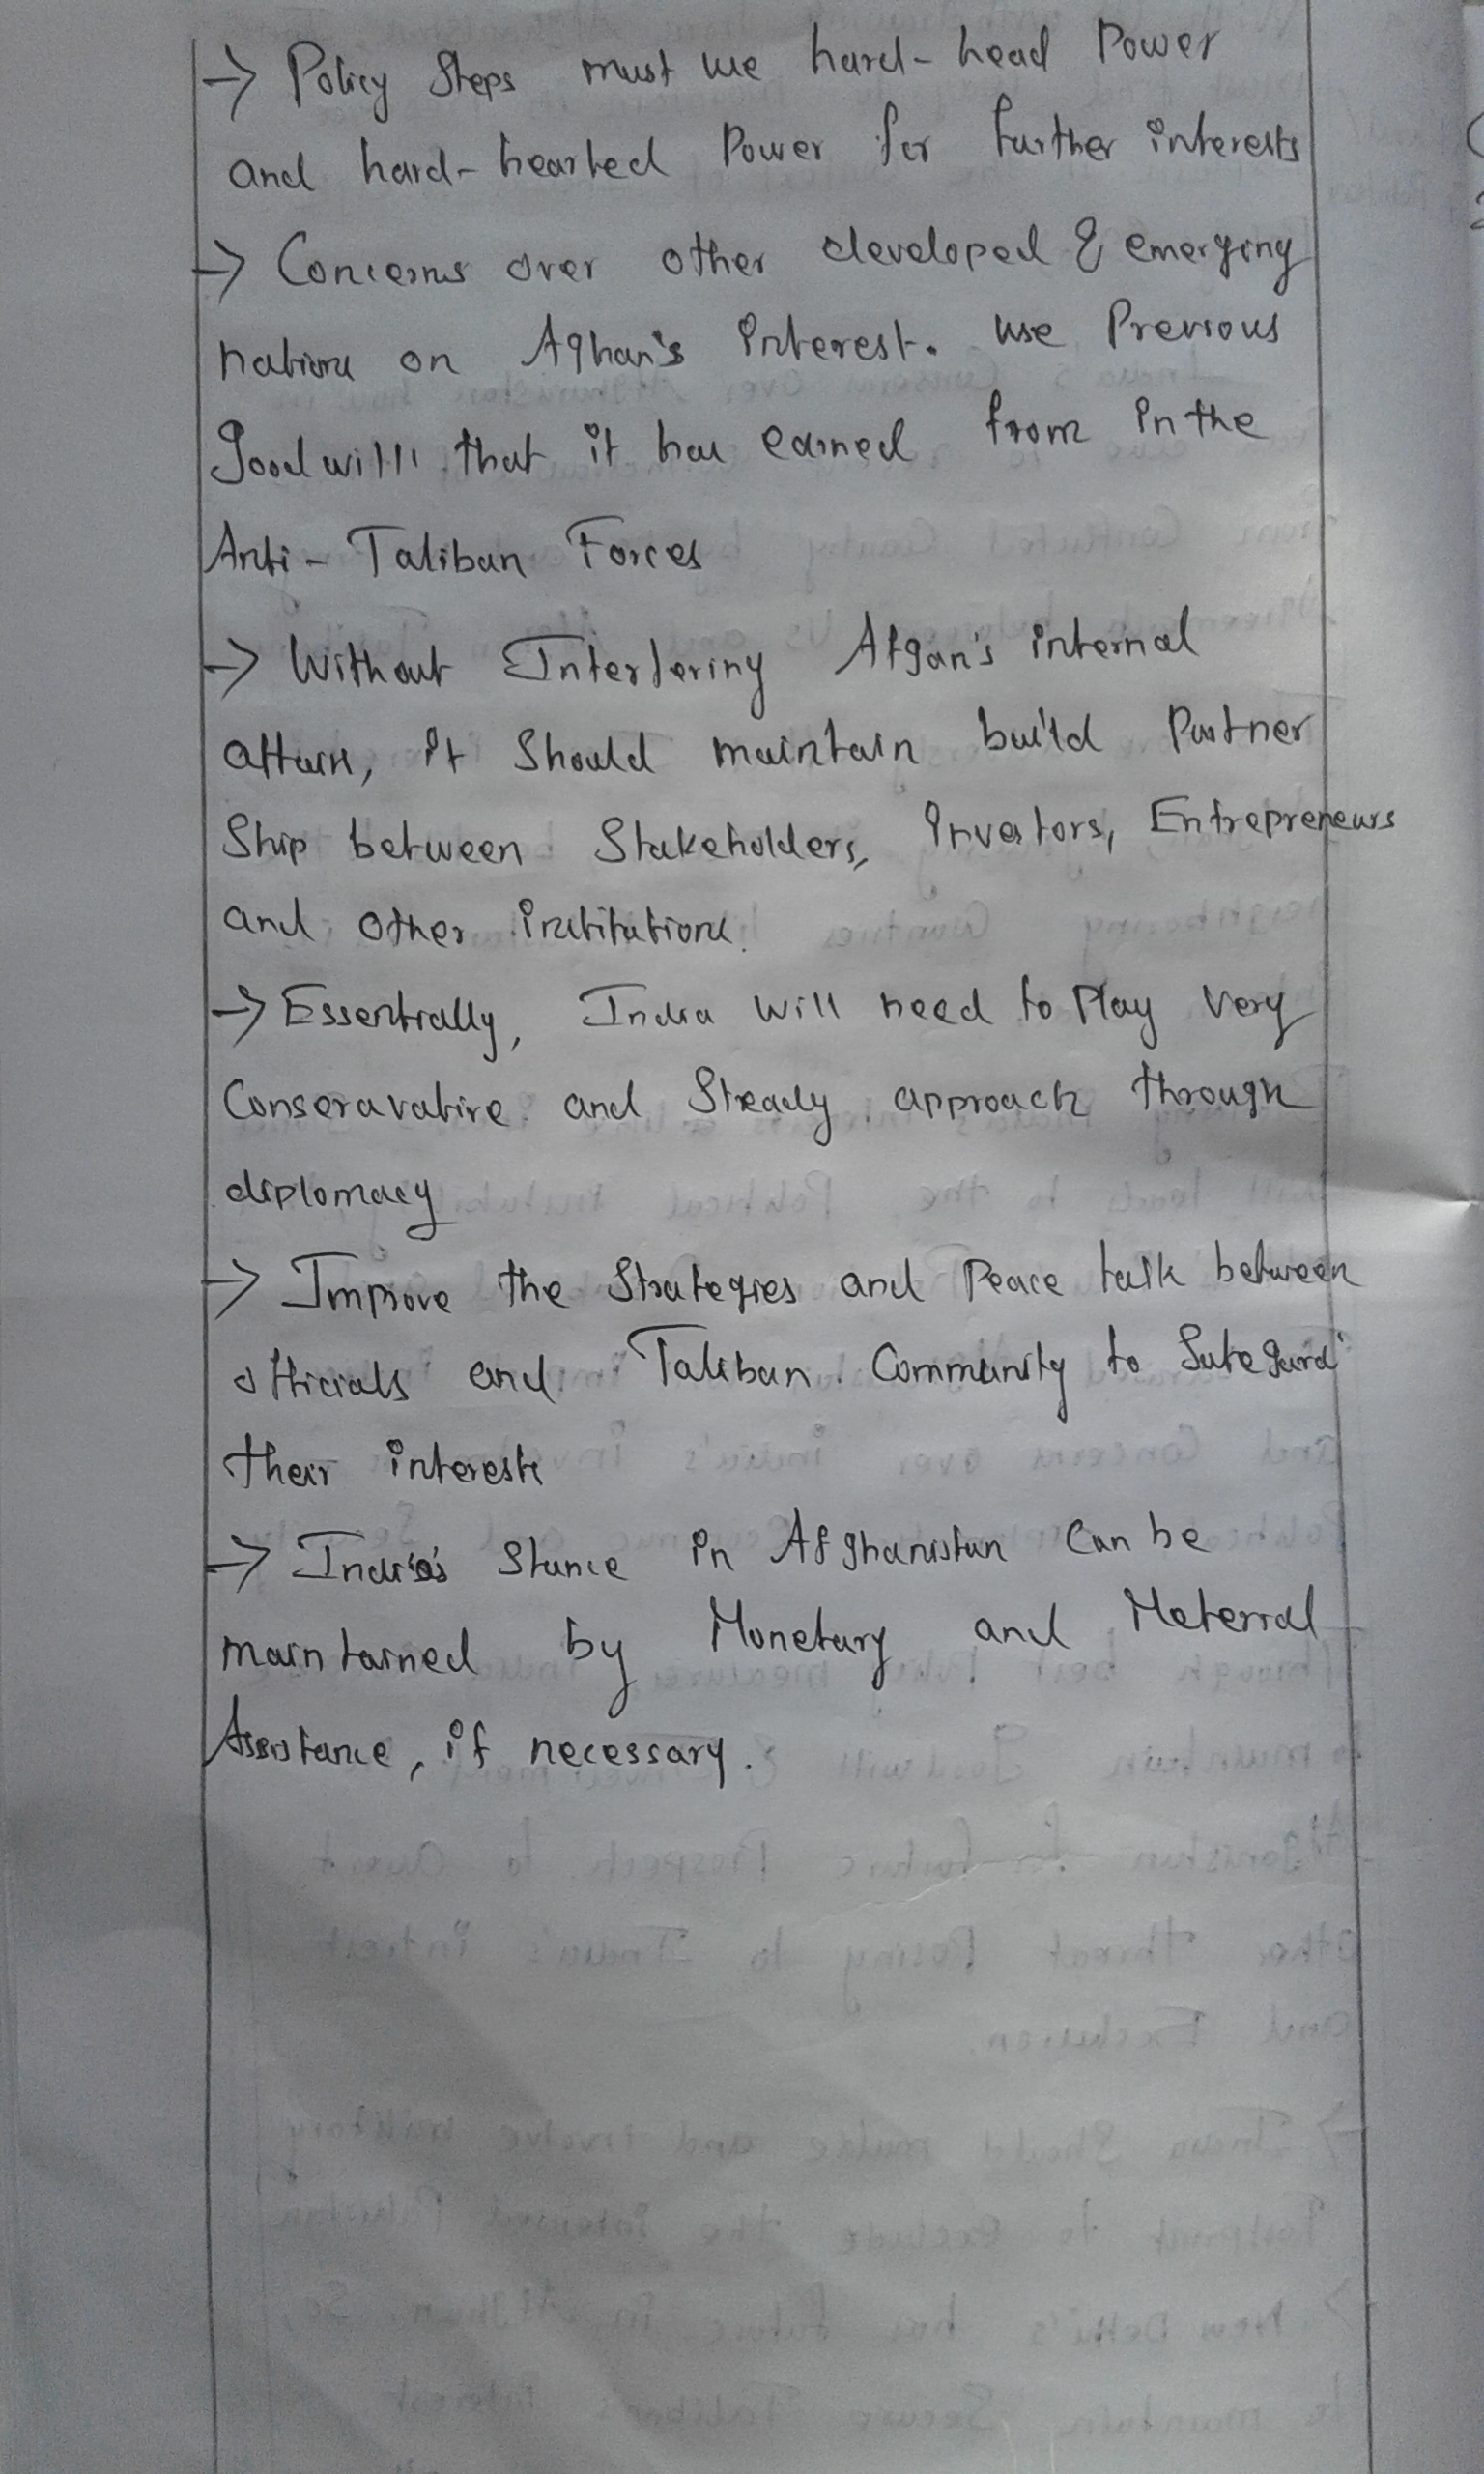 → Policy Steps must use hard-head Power
and hard-hearted Power for further interests
→ Concerns over other developed & emerging
nations on Aghan's interest. use Previous
Goodwill that it has earned from in the
Anti-Taliban Forces
→ Without Interfering Afgan's internal
affairs, it Should maintain build Partner
Ship between Stakeholders, Investors, Entrepreneurs
and other institutions.
→ Essentially, India will need to Play very
Conseravative and Steady approach through
diplomacy
→ Improve the Strategies and Peace talk between
officials and Taliban Community to Safegard
their interests
→ India's Stance in Afghanistan Can be
maintained by Monetary and Meterial
Assistance, if necessary.